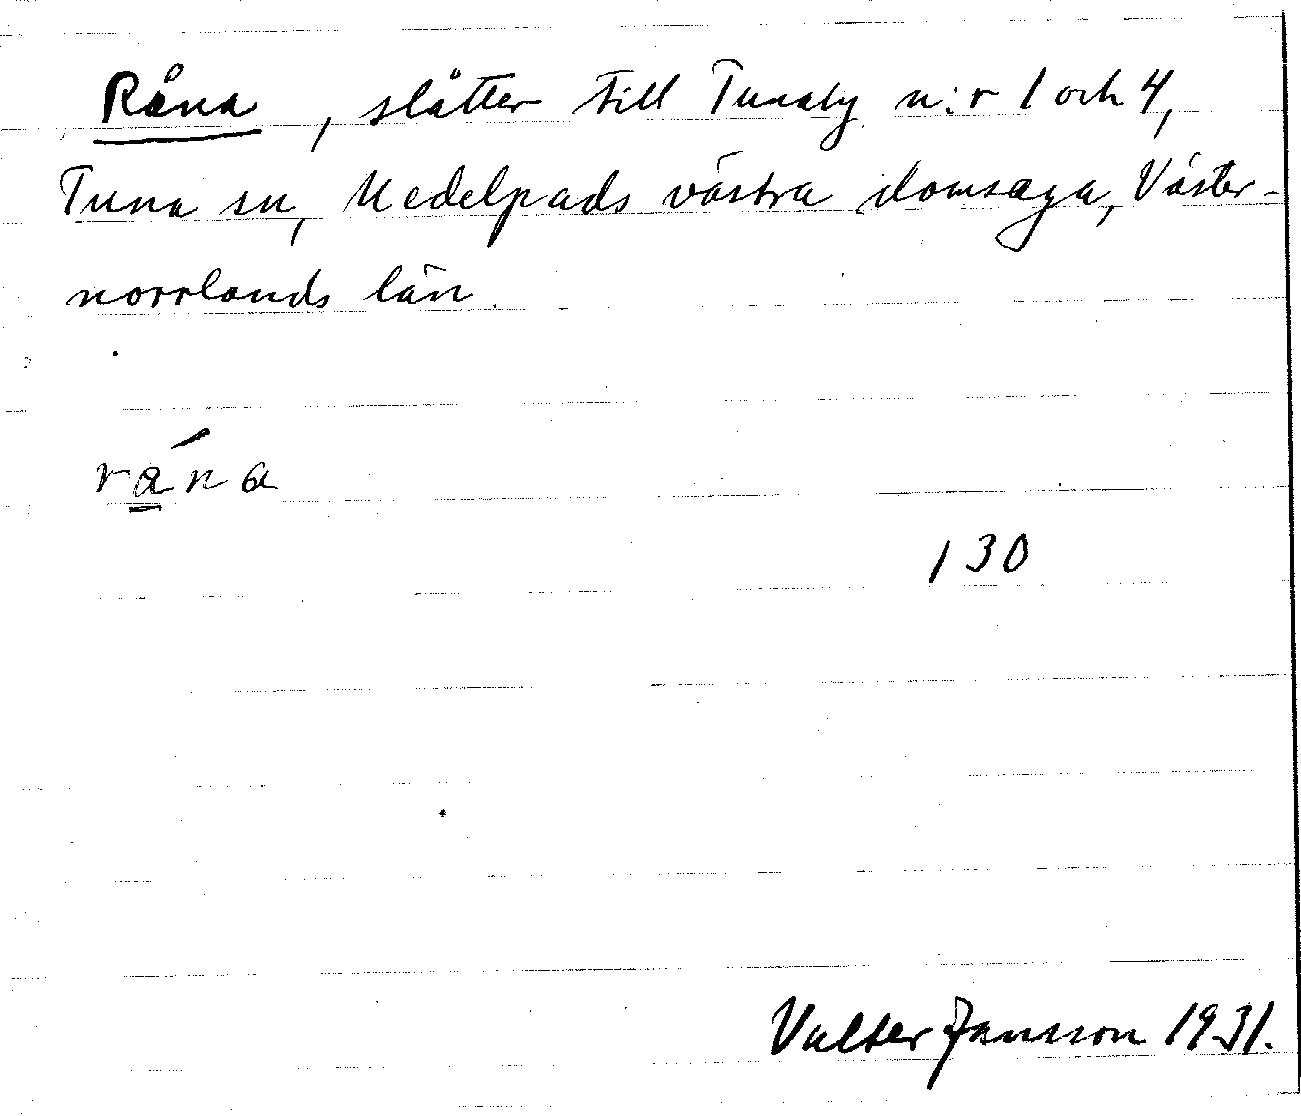 Råna, slåtter till Tunaby n:r 1 och 4,
Tuna sn, Medelpads västra domsaga, Väster-
norrlands län.
rána
130
Valter Jansson 1931.